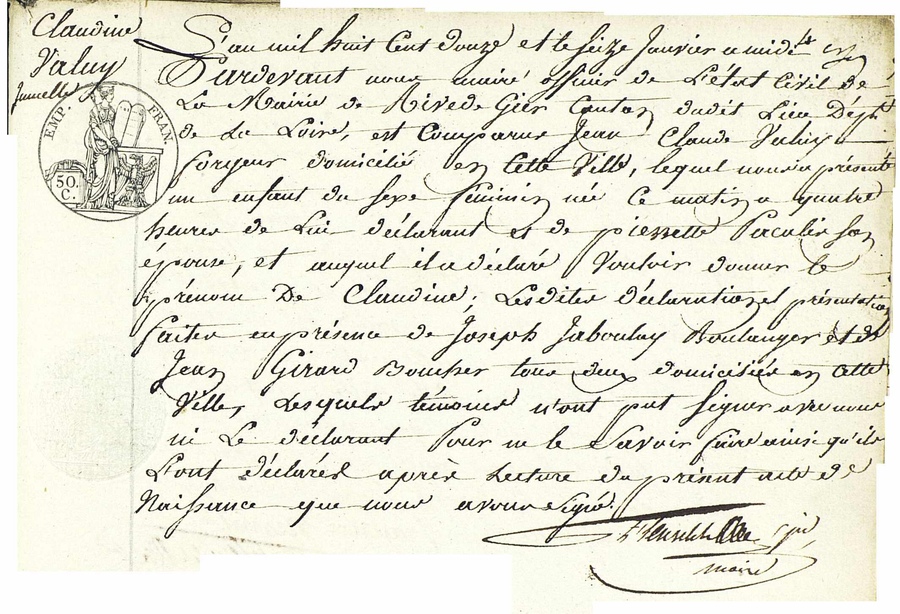 Claudine
Valuy
Jumelle
EMP. FRAN.
50.
C.
L'an mil huit Cent douze et le seize Janvier a midi et
Pardevant nous maire officier de L'état Civil de
La Mairie de Rive de Gier Canton dudit Lieu Dépt
de La Loire, est Comparu Jean Claude Valuy
forgeur domicilié en Cette Ville, lequel nous a présenté
un enfant du sexe féminin née Ce matin a quatre
heures de Lui déclarant et de pierrette Pacalin son
épouse, et auquel il a déclaré Vouloir donner le
prénom De Claudine; Lesdites déclaration et présentation
faites en présence de Joseph Jaboulay Boulanger et de
Jean Girard Boucher tous deux domiciliés en Cette
Ville, Lesquels témoins n'ont put signer avec nous
ni Le déclarant Pour ne le Savoir faire ainsi qu'ils
L'ont déclarés après Lecture du présent acte de
Naissance que nous avons signé.
maire